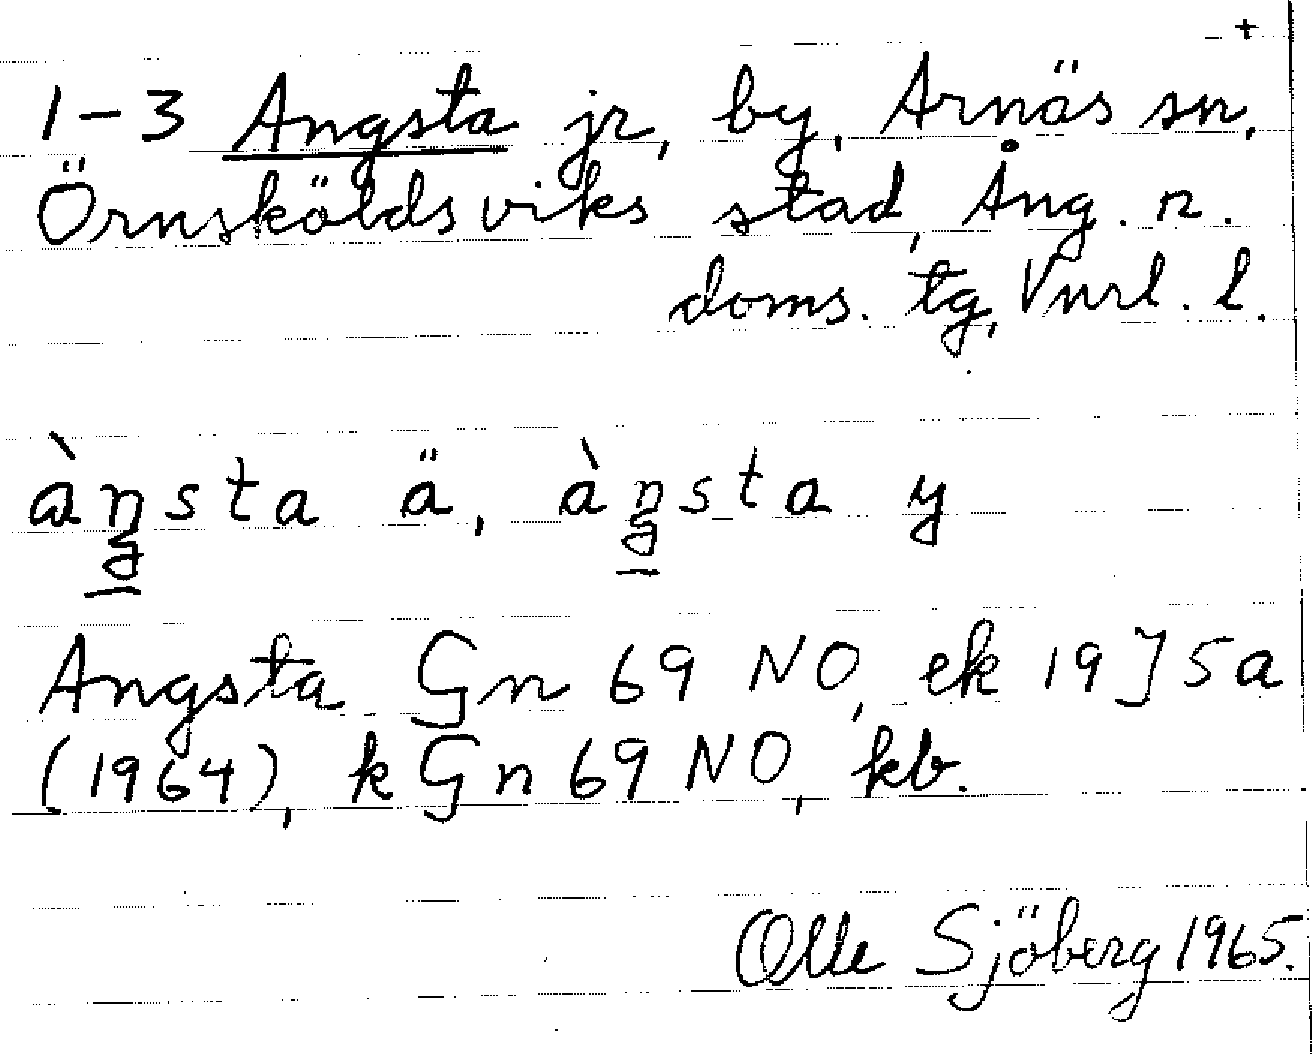 +
1-3 Angsta jr, by, Arnäs sn,
Örnsköldsviks stad, Ång. n.
doms. tg, Vnrl. l.
àŋsta ä, àŋsta y
Angsta Gn 69 NO, ek 19J5a
(1964), k Gn 69 NO, kb.
Olle Sjöberg 1965.